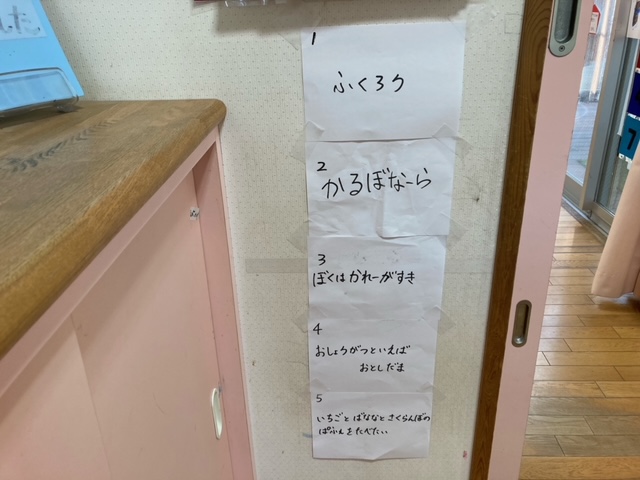 1
ふくろう
2
かるぼなーら
3
ぼくはかれーがすき
4
おしょうがつといえば
おとしだま
5
いちごとばななとさくらんぼの
ぱふぇをたべたい